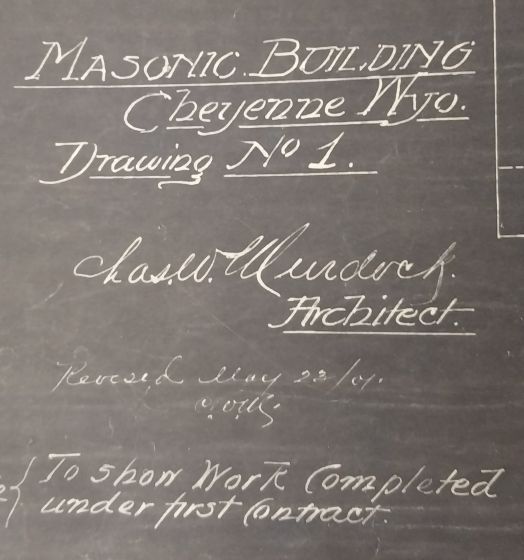 MASONIC. BUILDING
Cheyenne Wyo.
Drawing No 1.
Chas. W. Murdock.
Architect.
Revised May 22/01.
To show Work Completed
under first Contract.